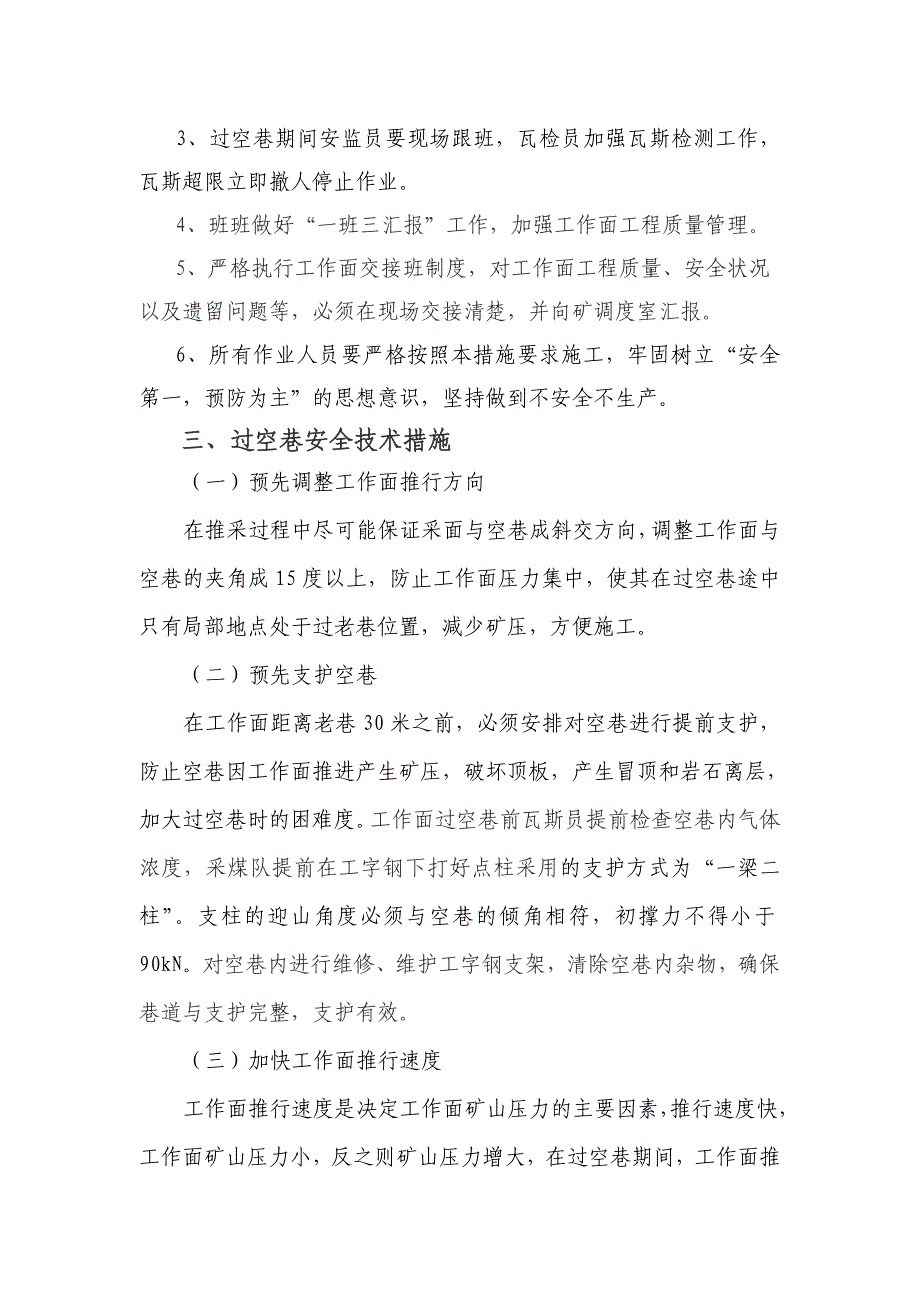 3、过空巷期间安监员要现场跟班，瓦检员加强瓦斯检测工作，
瓦斯超限立即撤人停止作业。
4、班班做好“一班三汇报”工作，加强工作面工程质量管理。
5、严格执行工作面交接班制度，对工作面工程质量、安全状况
以及遗留问题等，必须在现场交接清楚，并向矿调度室汇报。
6、所有作业人员要严格按照本措施要求施工，牢固树立“安全
第一，预防为主”的思想意识，坚持做到不安全不生产。
三、过空巷安全技术措施
（一）预先调整工作面推行方向
在推采过程中尽可能保证采面与空巷成斜交方向，调整工作面与
空巷的夹角成15度以上，防止工作面压力集中，使其在过空巷途中
只有局部地点处于过老巷位置，减少矿压，方便施工。
（二）预先支护空巷
在工作面距离老巷30米之前，必须安排对空巷进行提前支护，
防止空巷因工作面推进产生矿压，破坏顶板，产生冒顶和岩石离层，
加大过空巷时的困难度。工作面过空巷前瓦斯员提前检查空巷内气体
浓度，采煤队提前在工字钢下打好点柱采用的支护方式为“一梁二
柱”。支柱的迎山角度必须与空巷的倾角相符，初撑力不得小于
90kN。对空巷内进行维修、维护工字钢支架，清除空巷内杂物，确保
巷道与支护完整，支护有效。
（三）加快工作面推行速度
工作面推行速度是决定工作面矿山压力的主要因素，推行速度快，
工作面矿山压力小，反之则矿山压力增大，在过空巷期间，工作面推